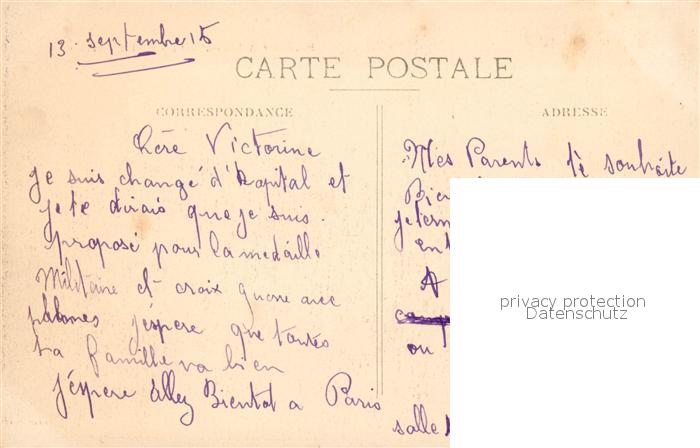 13. septembre 15
CARTE POSTALE
CORRESPONDANCE
ADRESSE
Chéré Victorine
je suis changé d'hopital et
je te dirais que je suis.
proposé pour la medaille
Militaire et croix guerre avec
palmes j'éspere que toutes
ta famille va bien
j'éspere allez Bientot a Paris
Mes Parents té souhaite
Bien
je
en
A
ou
salle
privacy protection
Datenschutz